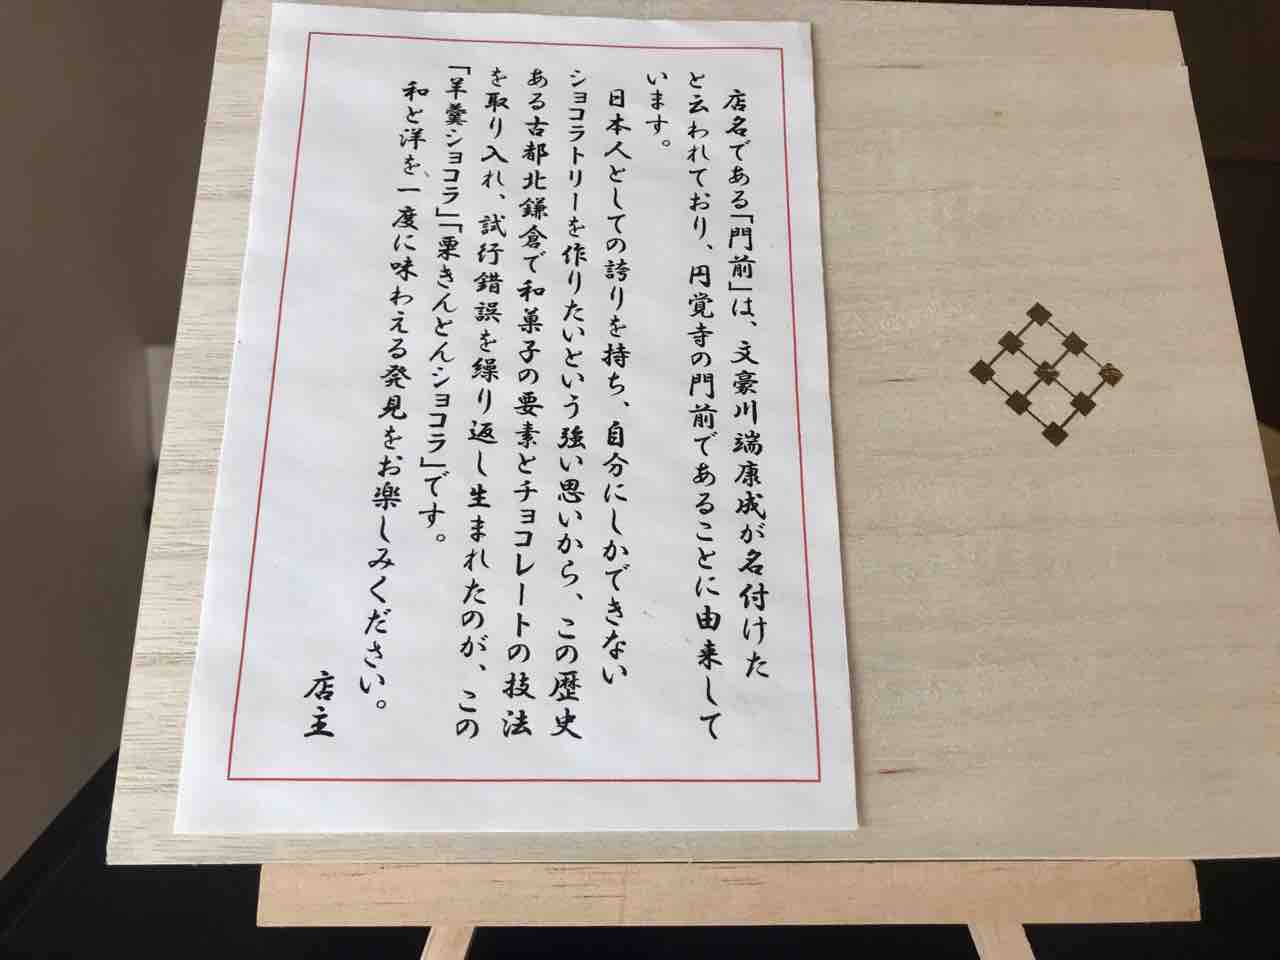 店名である「門前」は、文豪川端康成が名付けた
と云われており、円覚寺の門前であることに由来して
います。
日本人としての誇りを持ち、自分にしかできない
ショコラトリーを作りたいという強い思いから、この歴史
ある古都北鎌倉で和菓子の要素とチョコレートの技法
を取り入れ、試行錯誤を繰り返し生まれたのが、この
「羊羹ショコラ」「栗きんとんショコラ」です。
和と洋を、一度に味わえる発見をお楽しみください。
店主